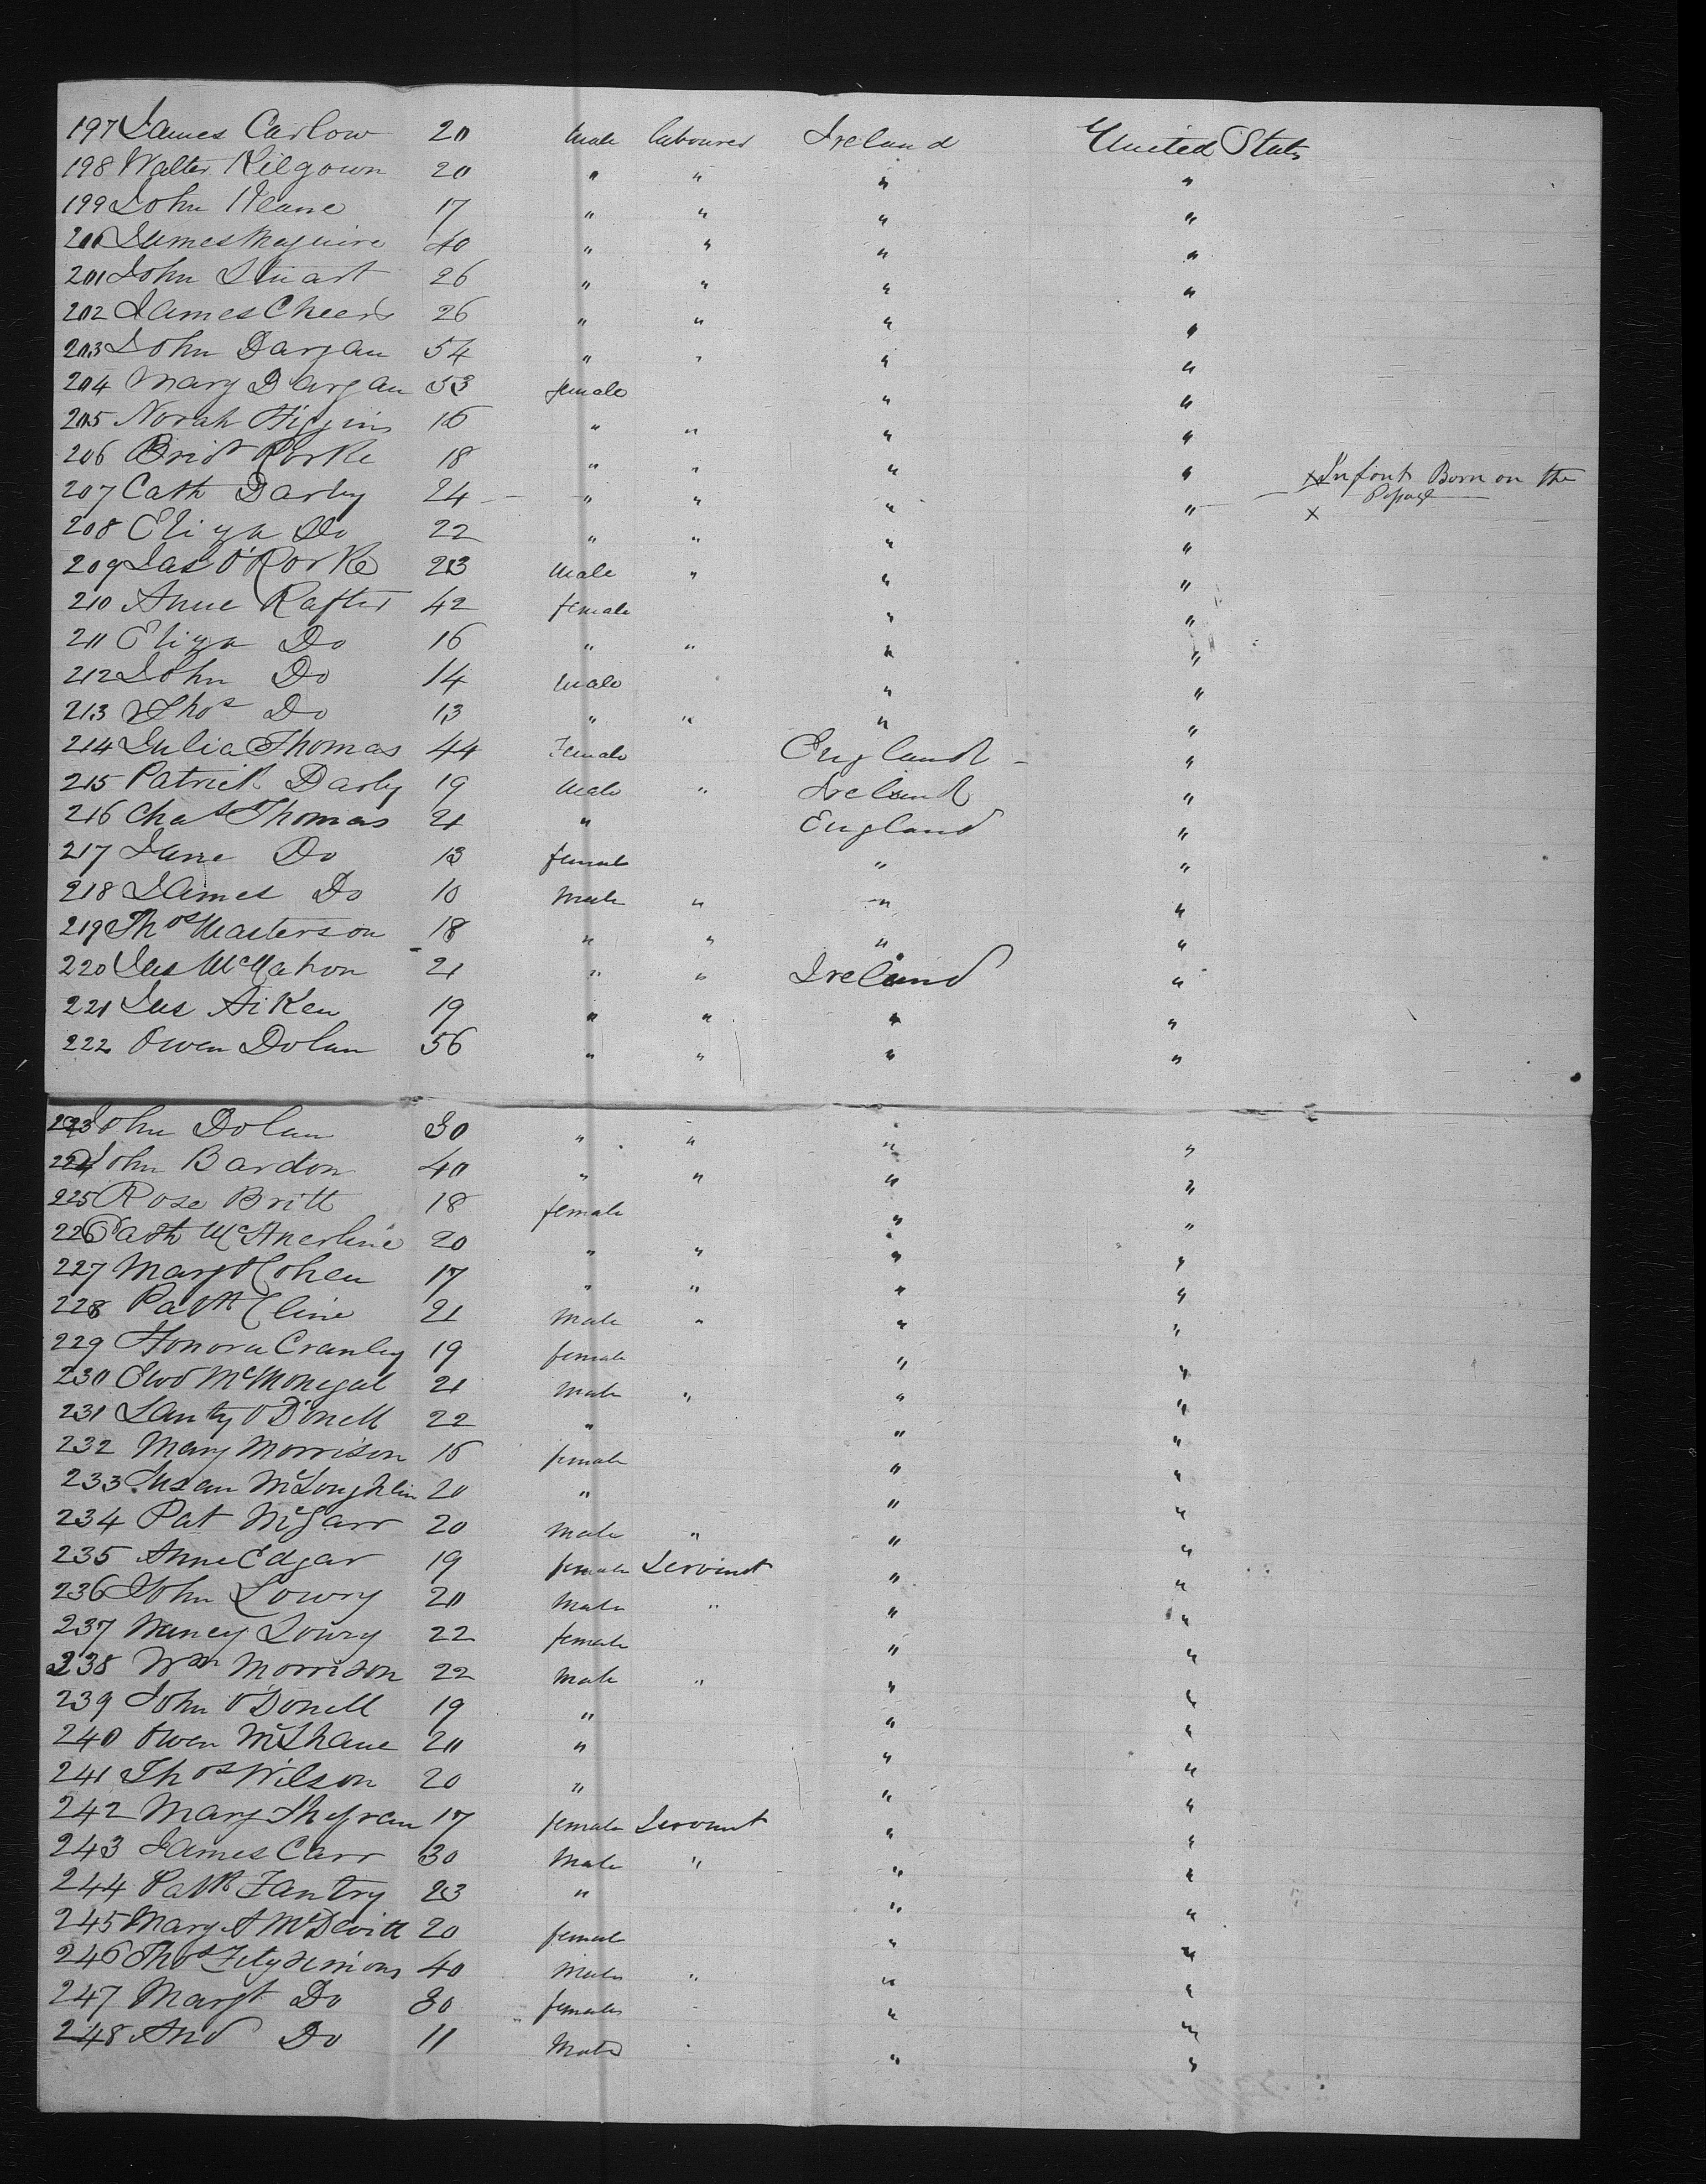 197 James Carlow 20 Male labourer Ireland United States
198 Walter Kilgown 20 " " " "
199 John Keane 17 " " " "
200 James Maguire 40 " " " "
201 John Stuart 26 " " " "
202 James Cheers 26 " " " "
203 John Dargan 54 " " " "
204 Mary Dargan 53 female " "
205 Norah Higgins 16 " " " "
206 Brid Rorke 18 " " " "
207 Cath Darby 24 " " " " x Infant Born on the
208 Eliza Do 22 " " " " x
209 Jas O'Rorke 23 Male " " "
210 Anne Rafter 42 female " "
211 Eliza Do 16 " " " "
212 John Do 14 Male " "
213 Thos Do 13 " " " "
214 Julia Thomas 44 Female England "
215 Patrick Darby 19 Male " Ireland "
216 Chas Thomas 21 " England "
217 Jane Do 13 female " "
218 James Do 10 Male " " "
219 Thos Masterson 18 " " " "
220 Jas McMahon 21 " " Ireland "
221 Jas Aiken 19 " " " "
222 Owen Dolan 56 " " " "
223 John Dolan 30 " " " "
224 John Bardon 40 " " " "
225 Rose Britt 18 female " "
226 Cath 20 " " " "
227 Mary Cohen 17 " " " "
228 Patk Cline 21 Male " " "
229 Honora Cranley 19 female " "
230 Edwd McMonegal 21 Male " " "
231 Lanty O'Donell 22 " " "
232 Mary Morrison 16 female " "
233 Susan McLoughlin 20 " " "
234 Pat McGarr 20 Male " " "
235 Anne Edgar 19 female Servant " "
236 John Lowry 20 Male " " "
237 Nancy Lowry 22 female " "
238 Wm Morrison 22 Male " " "
239 John O'Donell 19 " " "
240 Owen McShane 20 " " "
241 Thos Wilson 20 " " "
242 Mary 17 female Servant " "
243 James Carr 30 Male " " "
244 Patk Fantry 23 " " "
245 Mary A McDevitt 20 female " "
246 Thos Fitzsimons 40 Male " " "
247 Margt Do 30 female " "
248 And Do 11 Male " "